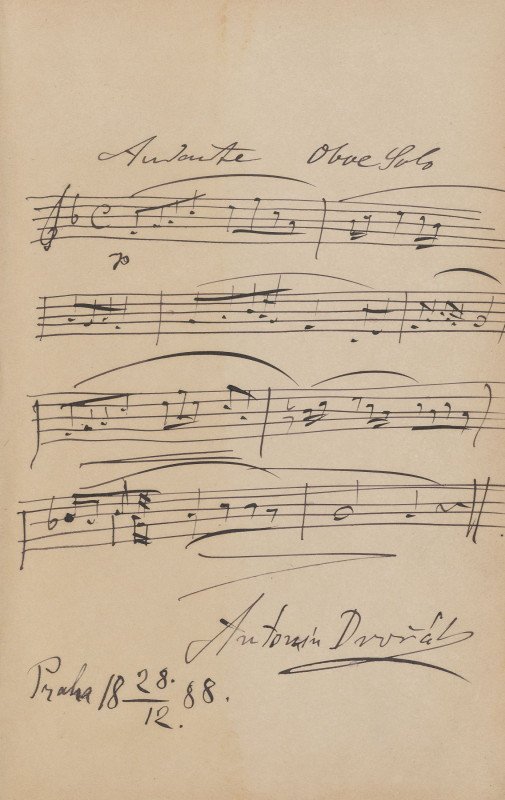 Andante Oboe Solo
p
Antonín Dvořák
Praha 18 28./12. 88.